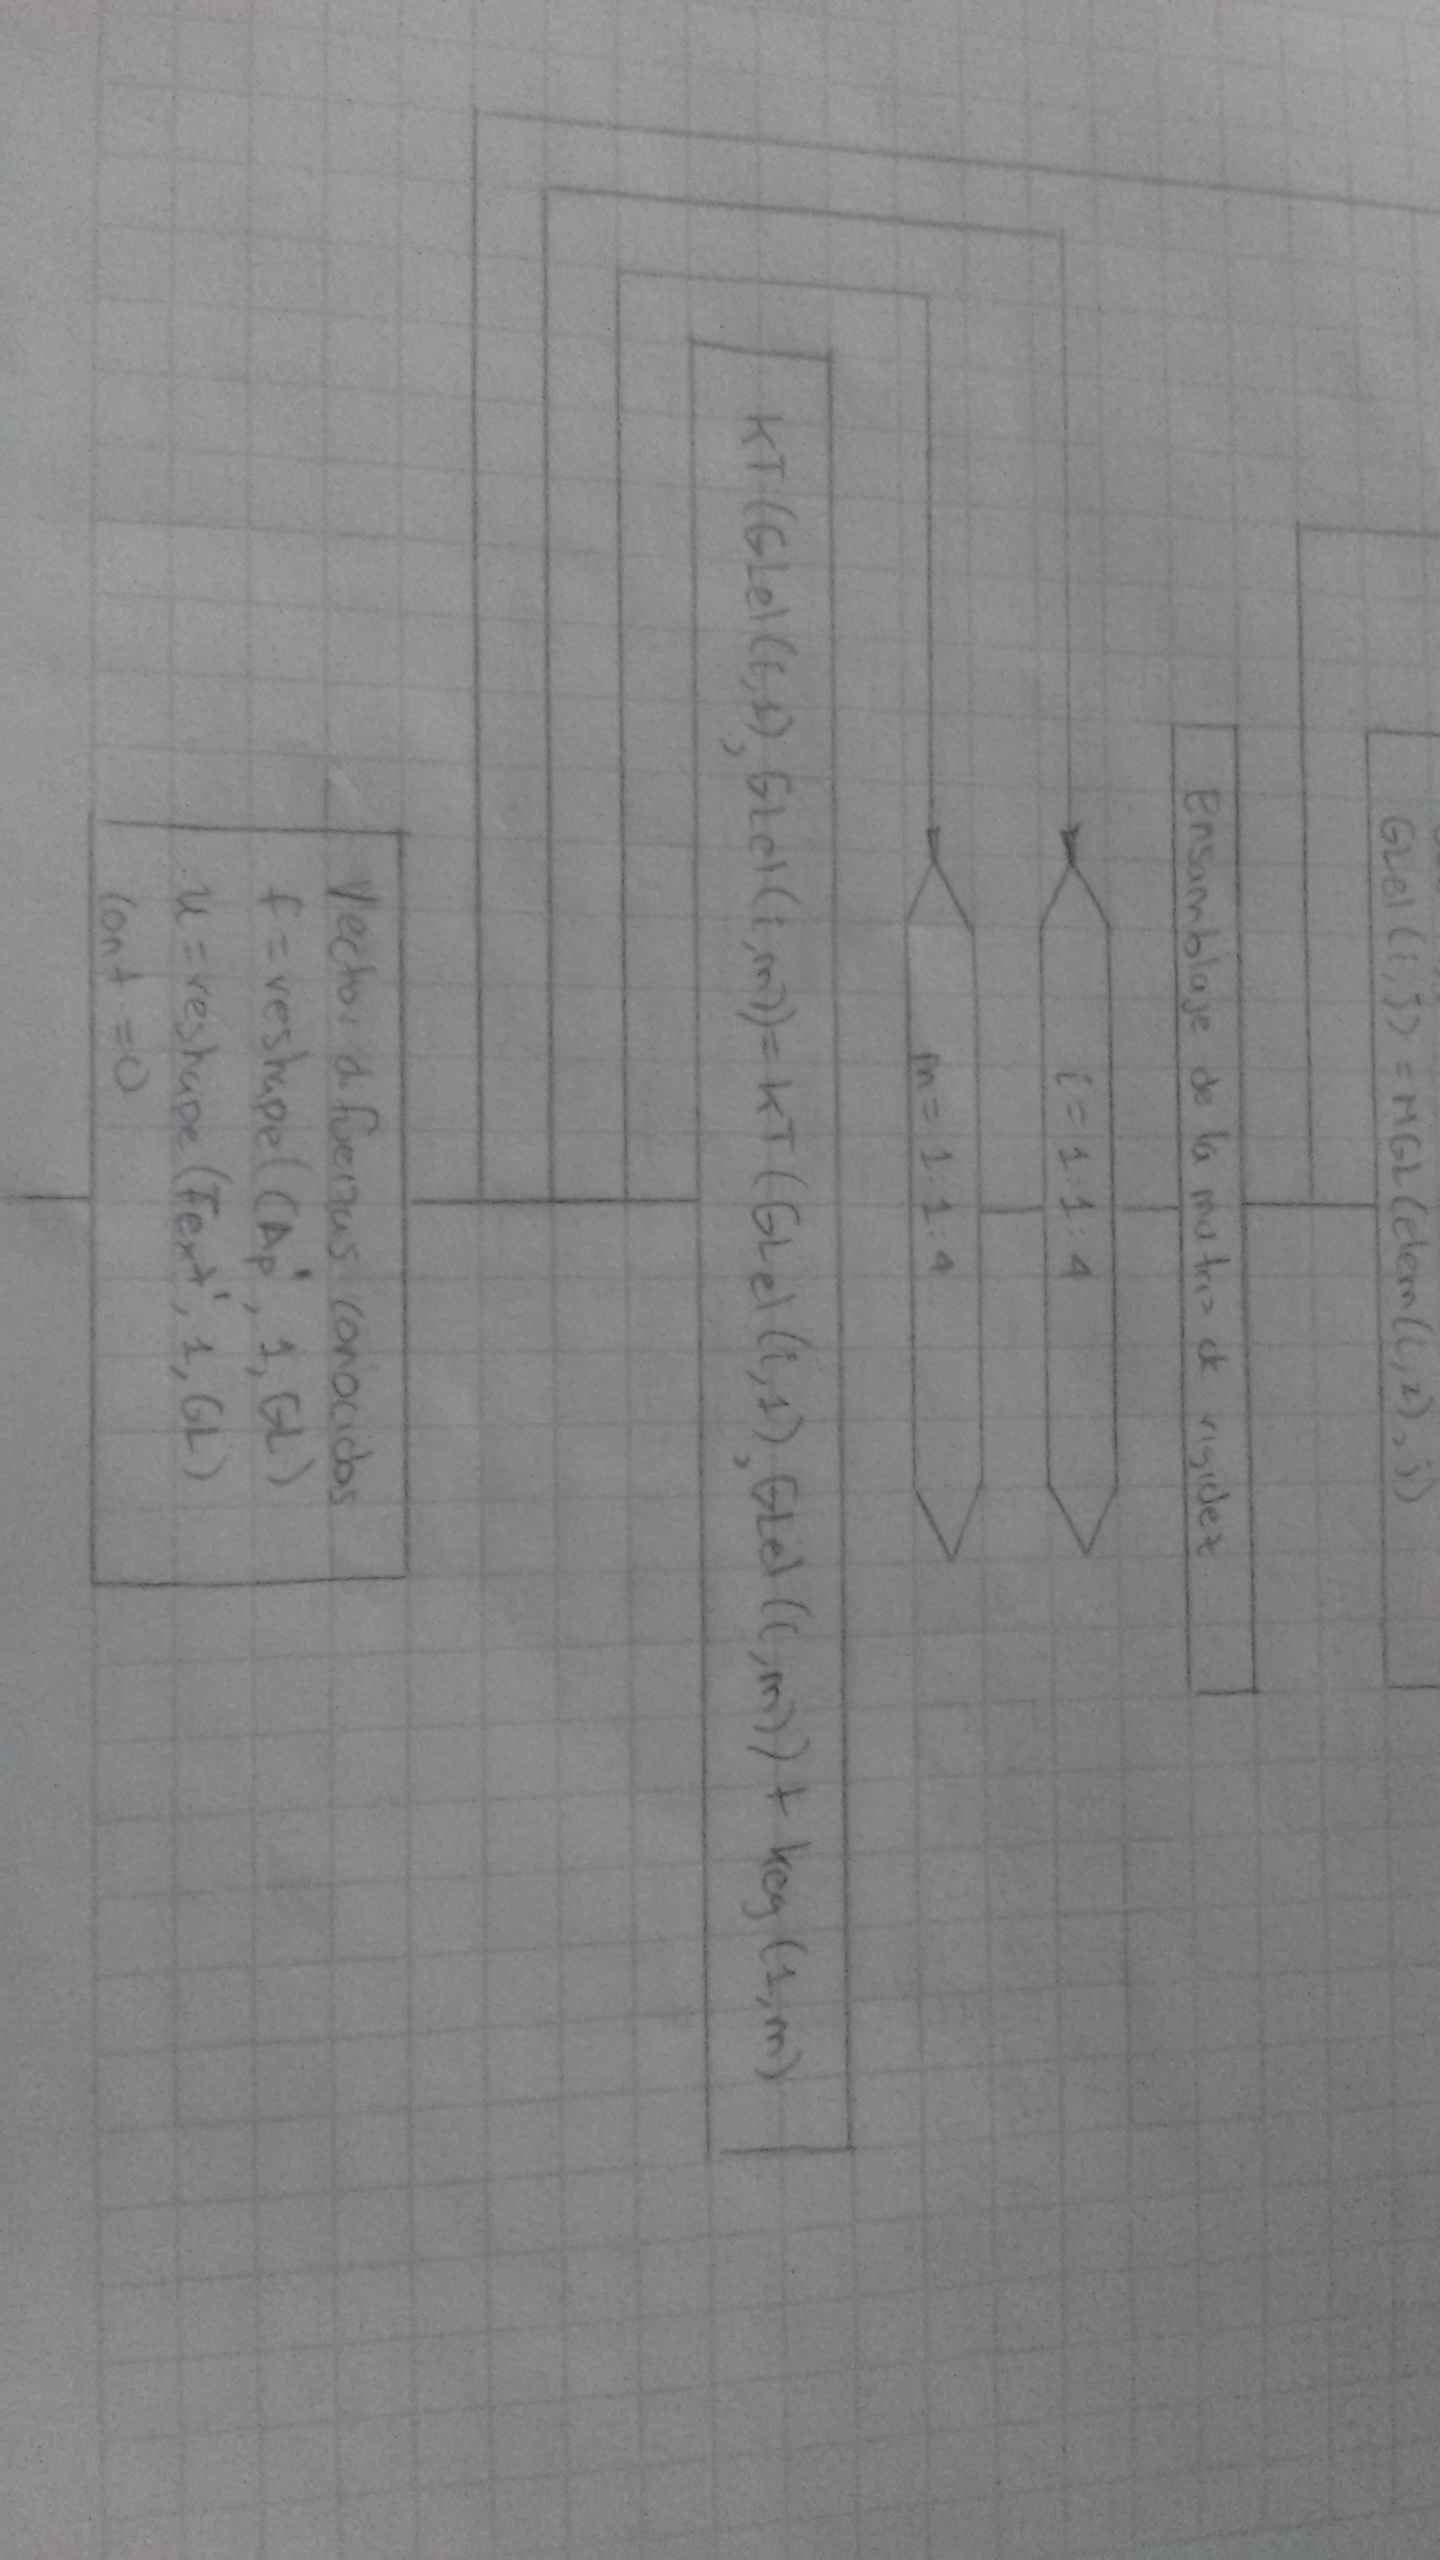 GLel(i,j)=MGL(elem(i,2),j)
Ensamblaje de la matriz de rigidez
i=1:1:4
m=1:1:4
KT(GLel(i,1),GLel(i,m))=KT(GLel(i,1),GLel(i,m))+keg(1,m)
Vector d fuerzas conocidas
f=reshape((Ap',1,GL)
u=reshape(Fext',1,GL)
Cont=0